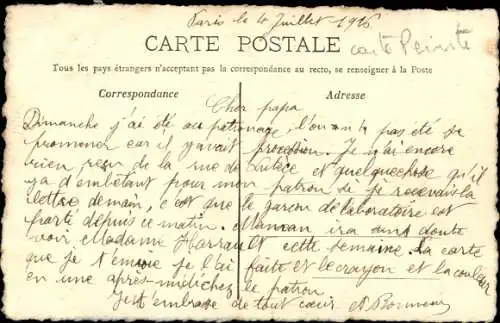 Paris le 4 Juillet 1916
CARTE POSTALE
carte Peinte
Tous les pays étrangers n'acceptant pas la correspondance au recto, se renseigner à la Poste
Correspondance
Adresse
Cher papa
Dimanche j'ai été au patronage, l'on a pas été se
promener car il y avait procession. Je n'ai encore
rien reçu de la rue de Lutèce et quelquechose qu'il
y a d'embêtant pour mon patron si je recevais la
lettre demain, c'est que le garçon de laboratoire est
parti depuis ce matin. Maman ira sans doute
voir Madame cette semaine. La carte
que je t'envoie je l'ai faite et le crayon et la couleur
en une après-midi chez le patron.
Je t'embrasse de tout cœur